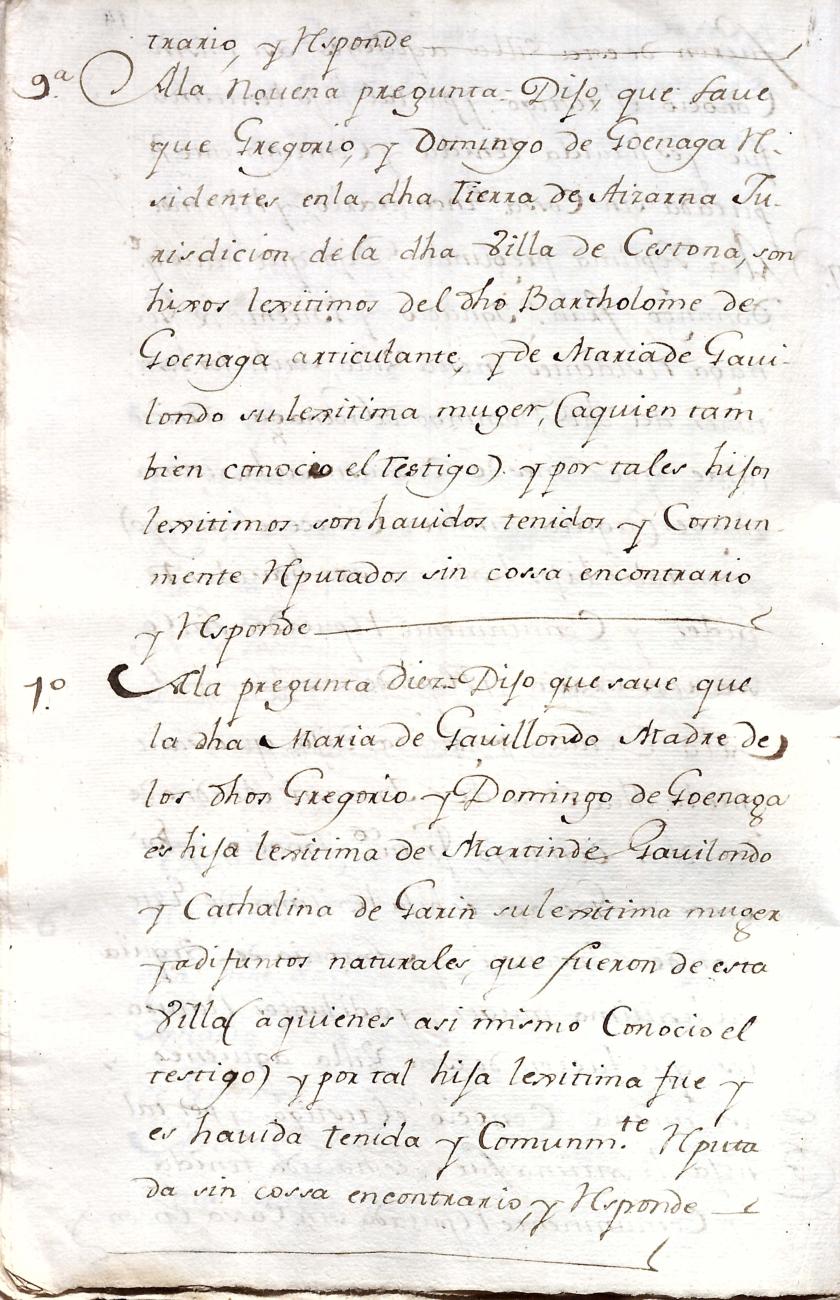 trario, y Responde
9ª Ala Novena pregunta = Dijo, que save
que Gregorio, y Domingo de Goenaga Re-
sidentes enla dha tierra de Aizarna Ju-
risdicion dela dha Villa de Cestona, son
hixos lexitimos del dho Bartholome de
Goenaga articulante, y de Maria de Gavi-
londo su lexitima muger, (aquien tam
bien conocio el testigo) y por tales hijos
lexitimos son havidos tenidos y Comun-
mente Reputados sin cossa encontrario
y Responde
10 Ala pregunta diez = Dijo que save que
la dha Maria de Gavillondo Madre de
los dhos Gregorio y Domingo de Goenaga
es hija lexitima de Martin de Gavilondo
y Cathalina de Garin su lexitima muger
ya difuntos naturales, que fueron de esta
Villa (aquienes asi mismo Conocio el
testigo) y por tal hija lexitima fue y
es havida tenida y Comunm.te Reputa
da sin cossa encontrario, y Responde